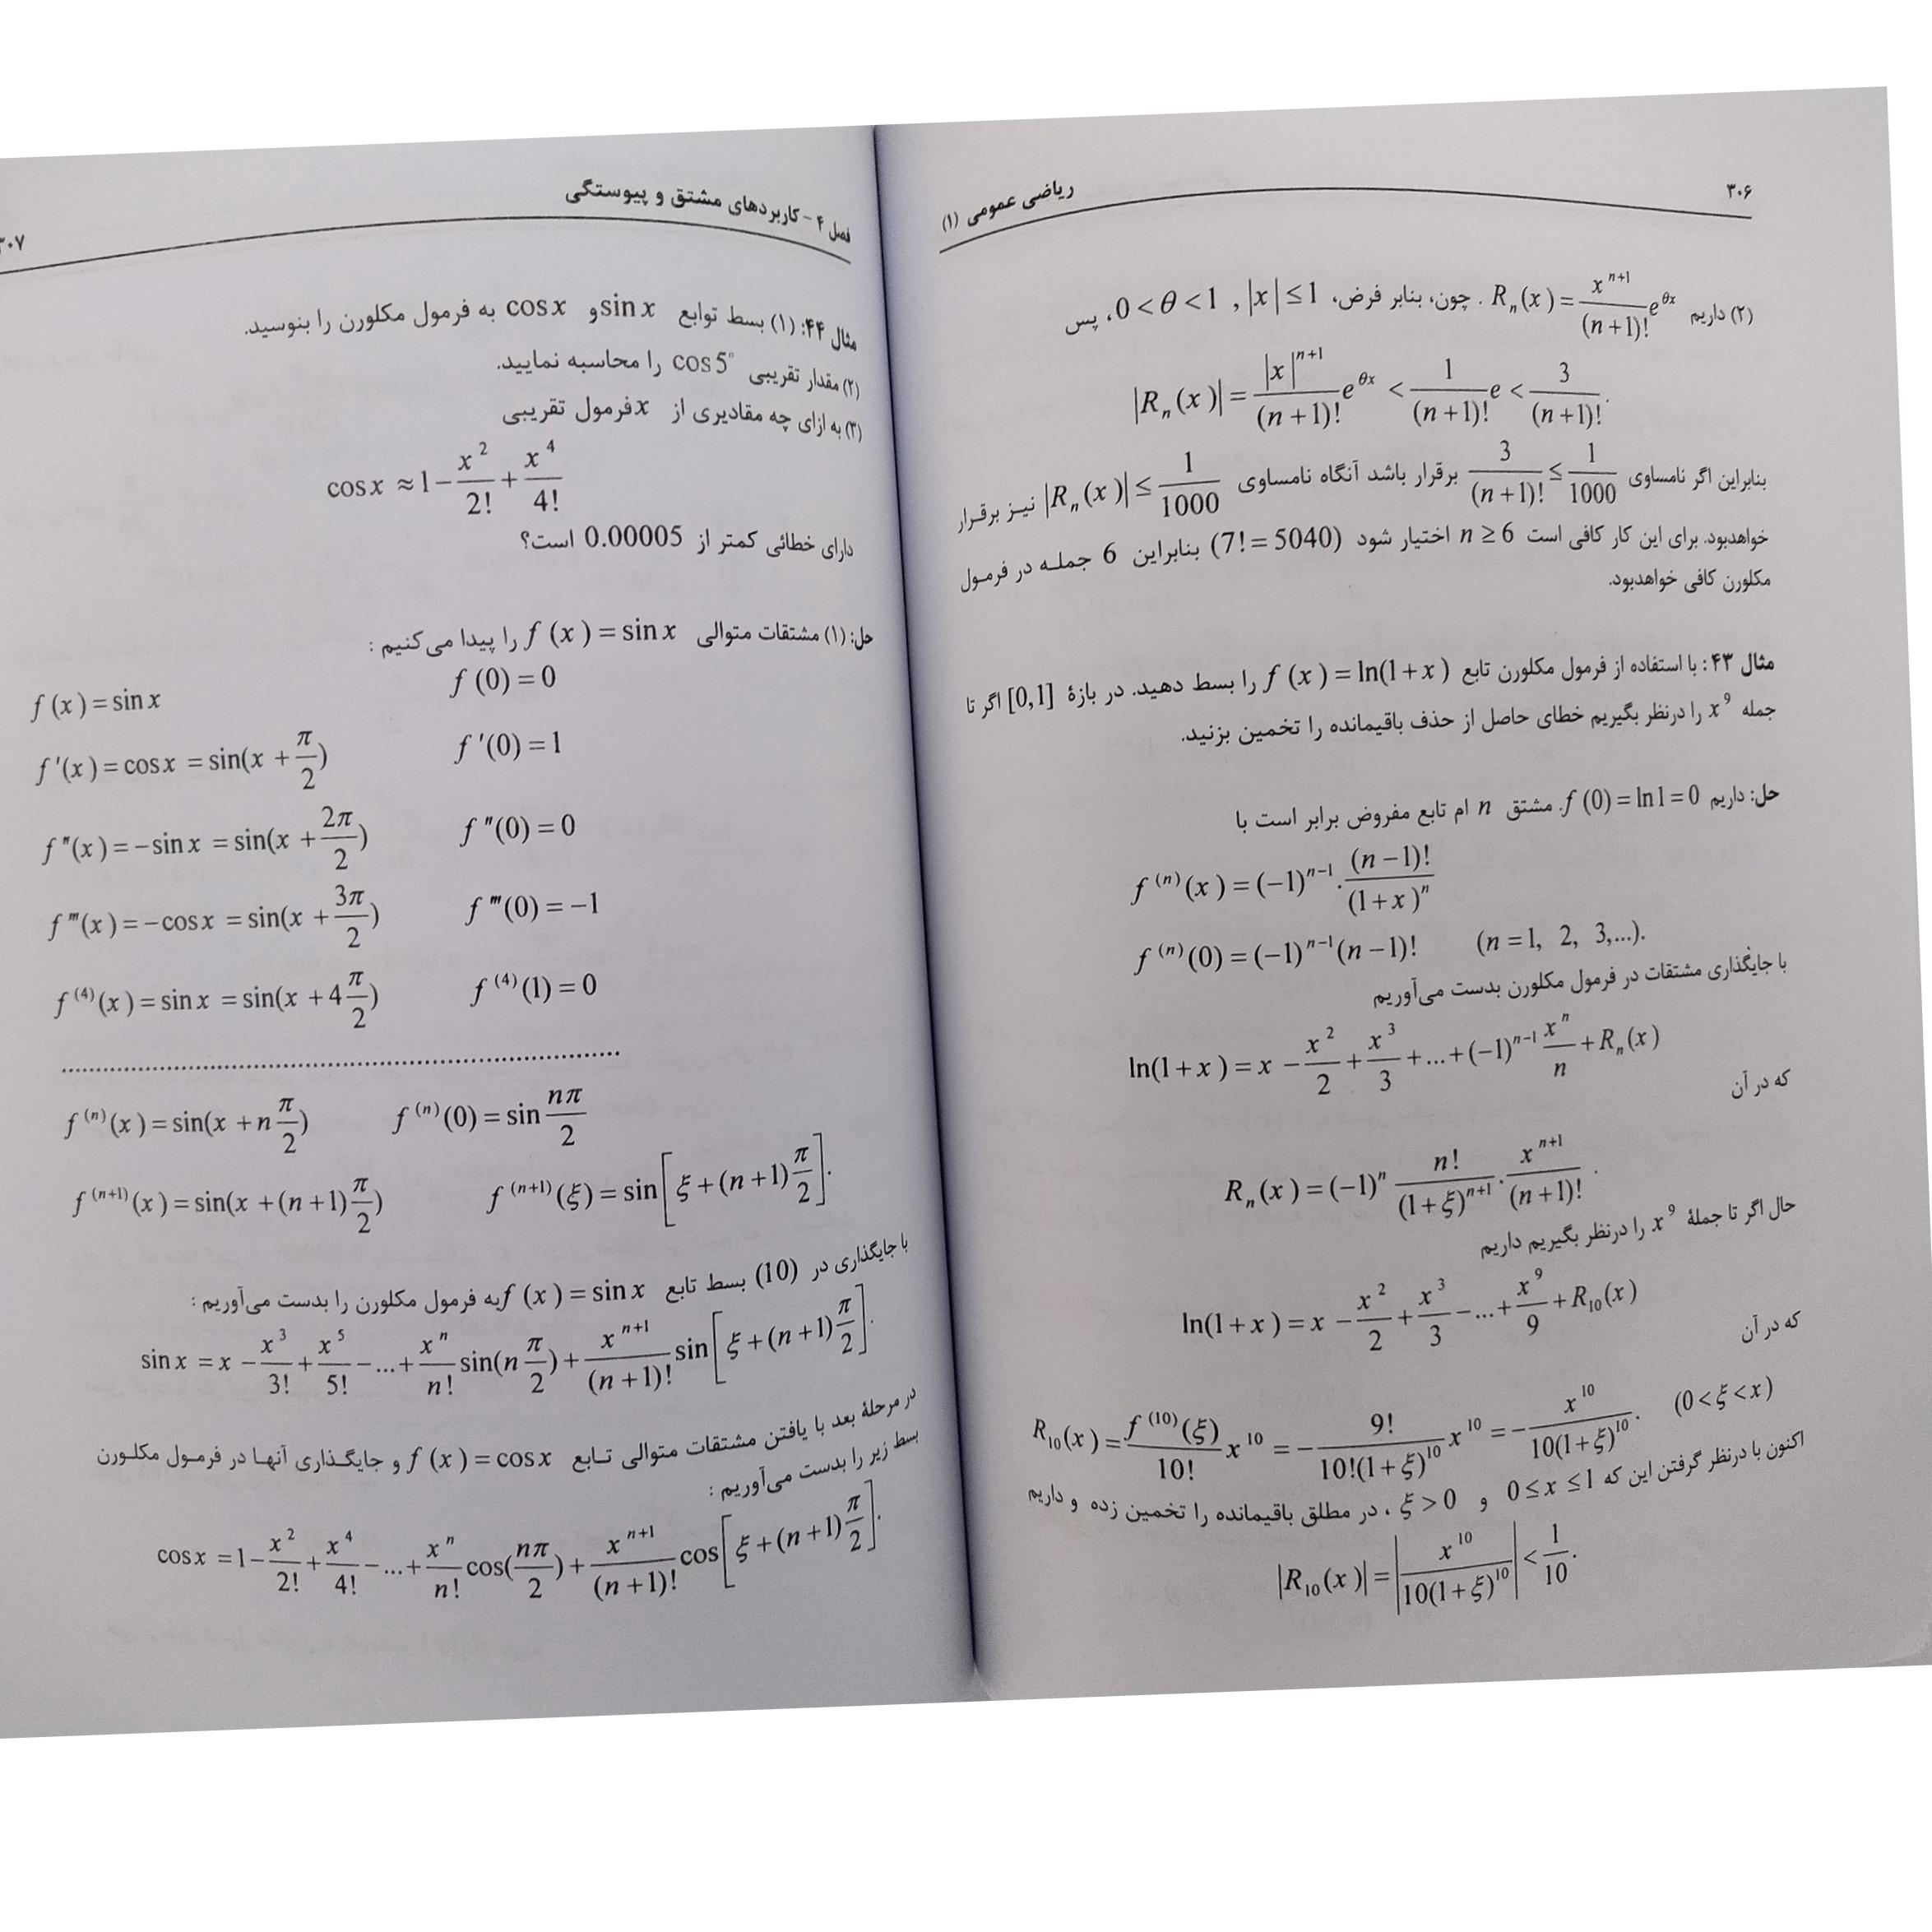 ۳۰۶
ریاضی عمومی (۱)
(۲) داریم R_n(x) = \frac{x^{n+1}}{(n+1)!}e^{θx} . چون، بنابر فرض، |x| ≤ 1 , 0 < θ < 1 ، پس
|R_n(x)| = \frac{|x|^{n+1}}{(n+1)!}e^{θx} < \frac{1}{(n+1)!}e < \frac{3}{(n+1)!}.
بنابراین اگر نامساوی \frac{3}{(n+1)!} ≤ \frac{1}{1000} برقرار باشد آنگاه نامساوی |R_n(x)| ≤ \frac{1}{1000} نیـز برقـرار
خواهدبود. برای این کار کافی است n ≥ 6 اختیار شود (7! = 5040) بنابراین 6 جملـه در فرمـول
مکلورن کافی خواهدبود.
مثال ۴۳: با استفاده از فرمول مکلورن تابع f(x) = ln(1+x) را بسط دهید. در بازهٔ [0,1] اگر تا
جمله x^9 را درنظر بگیریم خطای حاصل از حذف باقیمانده را تخمین بزنید.
حل: داریم f(0) = ln1 = 0. مشتق n ام تابع مفروض برابر است با
f^{(n)}(x) = (-1)^{n-1}.\frac{(n-1)!}{(1+x)^n}
f^{(n)}(0) = (-1)^{n-1}(n-1)! (n = 1, 2, 3,...).
با جایگذاری مشتقات در فرمول مکلورن بدست می‌آوریم
ln(1+x) = x - \frac{x^2}{2} + \frac{x^3}{3} + ... + (-1)^{n-1}\frac{x^n}{n} + R_n(x)
که در آن
R_n(x) = (-1)^n \frac{n!}{(1+ξ)^{n+1}}.\frac{x^{n+1}}{(n+1)!}.
حال اگر تا جملهٔ x^9 را درنظر بگیریم داریم
ln(1+x) = x - \frac{x^2}{2} + \frac{x^3}{3} - ... + \frac{x^9}{9} + R_{10}(x)
که در آن
R_{10}(x) = \frac{f^{(10)}(ξ)}{10!}x^{10} = -\frac{9!}{10!(1+ξ)^{10}}x^{10} = -\frac{x^{10}}{10(1+ξ)^{10}}. (0 < ξ < x)
اکنون با درنظر گرفتن این که 0 ≤ x ≤ 1 و ξ > 0 ، در مطلق باقیمانده را تخمین زده و داریم
|R_{10}(x)| = |\frac{x^{10}}{10(1+ξ)^{10}}| < \frac{1}{10}.
فصل ۴ - کاربردهای مشتق و پیوستگی
۳۰۷
مثال ۴۴: (۱) بسط توابع sin x و cos x به فرمول مکلورن را بنوسید.
(۲) مقدار تقریبی cos 5° را محاسبه نمایید.
(۳) به ازای چه مقادیری از x فرمول تقریبی
cos x ≈ 1 - \frac{x^2}{2!} + \frac{x^4}{4!}
دارای خطائی کمتر از 0.00005 است؟
حل: (۱) مشتقات متوالی f(x) = sin x را پیدا می‌کنیم :
f(x) = sin x f(0) = 0
f'(x) = cos x = sin(x + \frac{π}{2}) f'(0) = 1
f''(x) = -sin x = sin(x + \frac{2π}{2}) f''(0) = 0
f'''(x) = -cos x = sin(x + \frac{3π}{2}) f'''(0) = -1
f^{(4)}(x) = sin x = sin(x + 4\frac{π}{2}) f^{(4)}(1) = 0
................................................................................
f^{(n)}(x) = sin(x + n\frac{π}{2}) f^{(n)}(0) = sin\frac{nπ}{2}
f^{(n+1)}(x) = sin(x + (n+1)\frac{π}{2}) f^{(n+1)}(ξ) = sin[ξ + (n+1)\frac{π}{2}].
با جایگذاری در (10) بسط تابع f(x) = sin x به فرمول مکلورن را بدست می‌آوریم :
sin x = x - \frac{x^3}{3!} + \frac{x^5}{5!} - ... + \frac{x^n}{n!}sin(n\frac{π}{2}) + \frac{x^{n+1}}{(n+1)!}sin[ξ + (n+1)\frac{π}{2}].
در مرحلهٔ بعد با یافتن مشتقات متوالی تـابع f(x) = cos x و جایگـذاری آنهـا در فرمـول مکلـورن
بسط زیر را بدست می‌آوریم :
cos x = 1 - \frac{x^2}{2!} + \frac{x^4}{4!} - ... + \frac{x^n}{n!}cos(\frac{nπ}{2}) + \frac{x^{n+1}}{(n+1)!}cos[ξ + (n+1)\frac{π}{2}].